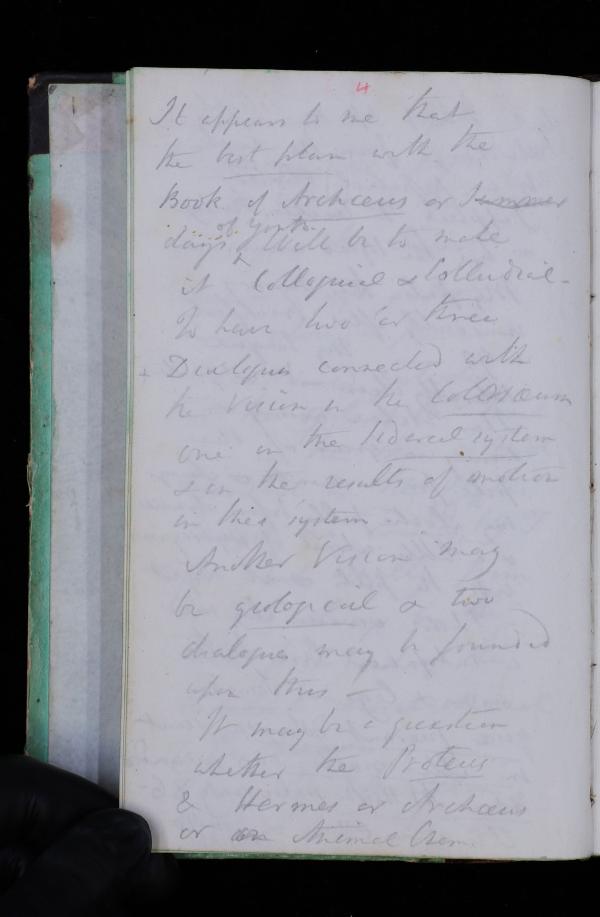 4
It appears to me that
the best plan with the
Book of Archæus or Summer
of Youth.
days will be to make
it Colloquial &
To have two or three
+ Dialogues connected with
the Vision in the Colosæum
one on the sidereal system
& on the results of motion
in this system.
Another Vision may
be geological & two
dialogues may be founded
upon this –
It may be a question
whether the Proteus
& Hermes or Archæus
or on Animal Chem.